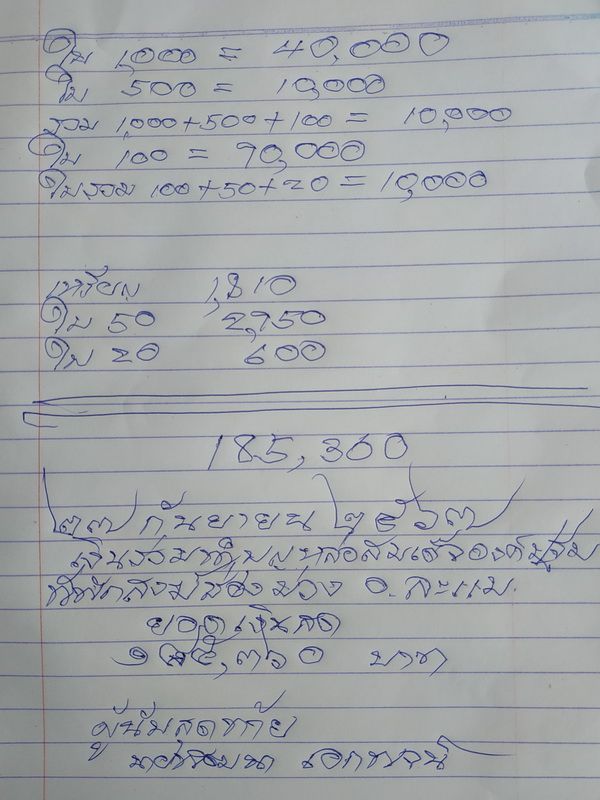 ใบ 1,000 = 40,000
ใบ 500 = 10,000
รวม 1,000+500+100 = 10,000
ใบ 100 = 90,000
ใบรวม 100+50+20 = 10,000
เหรียญ 1,810
ใบ 50 2,950
ใบ 20 600
185,360
๒๗ กันยายน ๒๕๖๗
เงินร่วมทำบุญหล่อสมเด็จองค์ปฐม
ที่พักสงฆ์ ม่วง อ. ละแม.
ยอดเงินสด
๑๘๕,๓๖๐ บาท
ผู้นับสุดท้าย